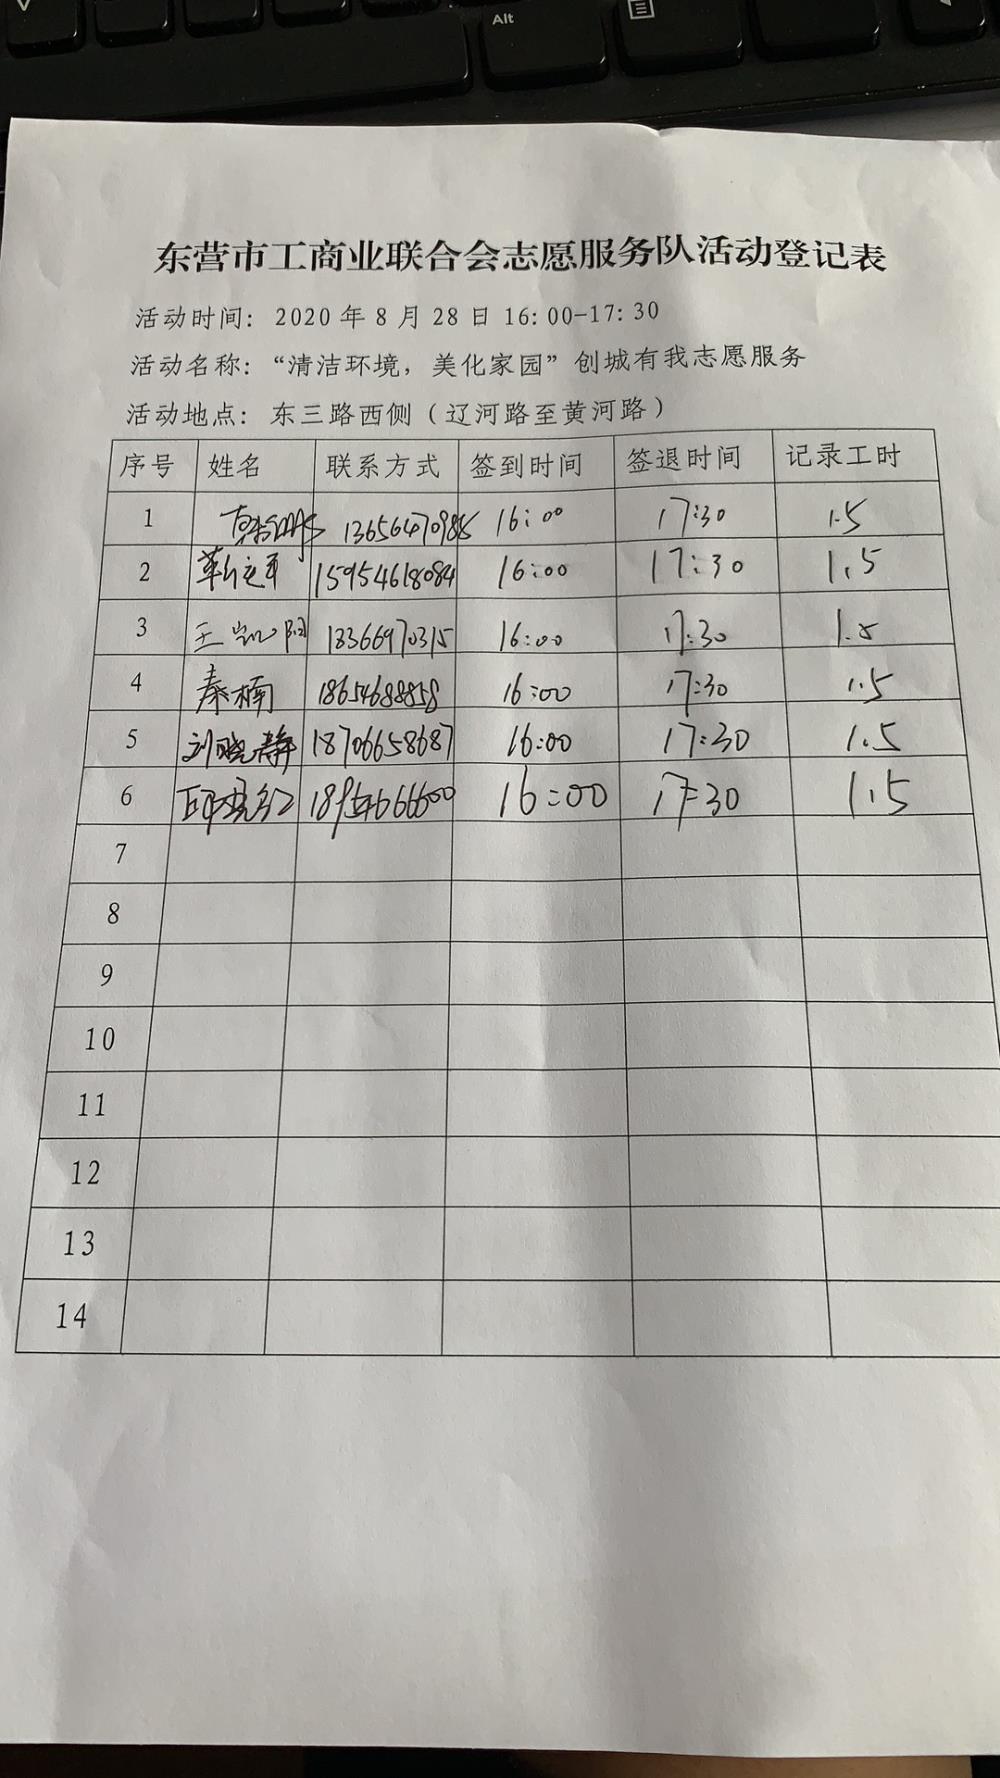 Alt
东营市工商业联合会志愿服务队活动登记表
活动时间: 2020 年 8 月 28 日 16: 00-17: 30
活动名称: “清洁环境, 美化家园” 创城有我志愿服务
活动地点: 东三路西侧 ( 辽河路至黄河路 )
序号 姓名 联系方式 签到时间 签退时间 记录工时
1 13656470985 16:00 17:30 1.5
2 15954618084 16:00 17:30 1.5
3 王凯阳 13366970315 16:00 17:30 1.5
4 秦楠 18654688858 16:00 17:30 1.5
5 刘晓静 18706658687 16:00 17:30 1.5
6 16:00 17:30 1.5
7
8
9
10
11
12
13
14